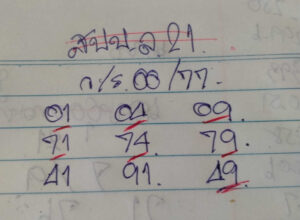 สปป.ล.21.
ก/ธ.00/77.
01 04 09
71 74. 79.
41 91. 49.